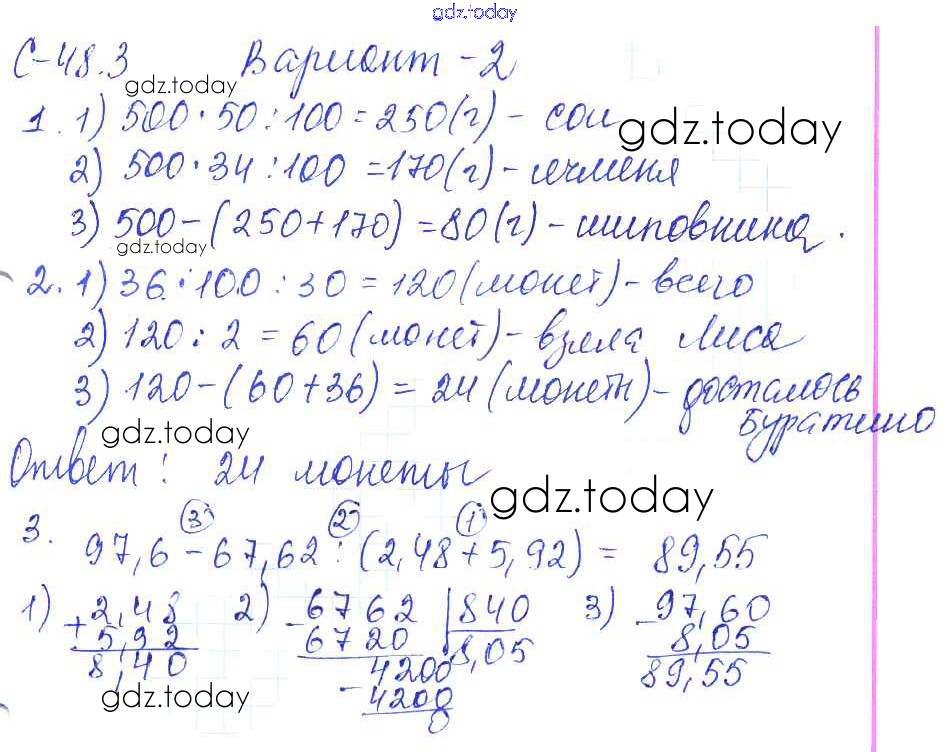 gdz.today
С-48.3 Вариант-2
gdz.today
1. 1) 500·50:100=250(г)- сои
gdz.today
2) 500·34:100=170(г)-ячменя
3) 500-(250+170)=80(г)-шиповника.
gdz.today
2. 1) 36·100:30=120(монет)-всего
2) 120:2=60(монет)-взяла Лиса
3) 120-(60+36)=24(монеты)-досталось
Буратино
gdz.today
Ответ: 24 монеты
gdz.today
3. 3 2 1
97,6-67,62:(2,48+5,92)= 89,55
1) +2,48 2) -6762 |840 3) -97,60
5,92 6720 8,05 8,05
8,40 4200 89,55
-4200
0
gdz.today